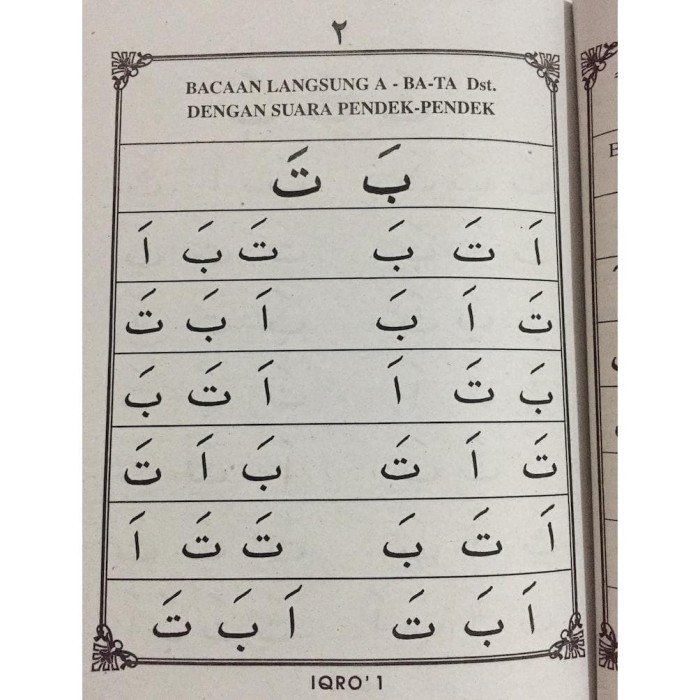 ٢
BACAAN LANGSUNG A - BA-TA Dst.
DENGAN SUARA PENDEK-PENDEK
بَ تَ
اَ تَ بَ تَ بَ اَ
تَ اَ بَ اَ بَ تَ
بَ تَ اَ اَ تَ بَ
تَ اَ تَ بَ اَ تَ
اَ تَ بَ تَ تَ اَ
اَ بَ تَ اَ بَ تَ
IQRO' 1